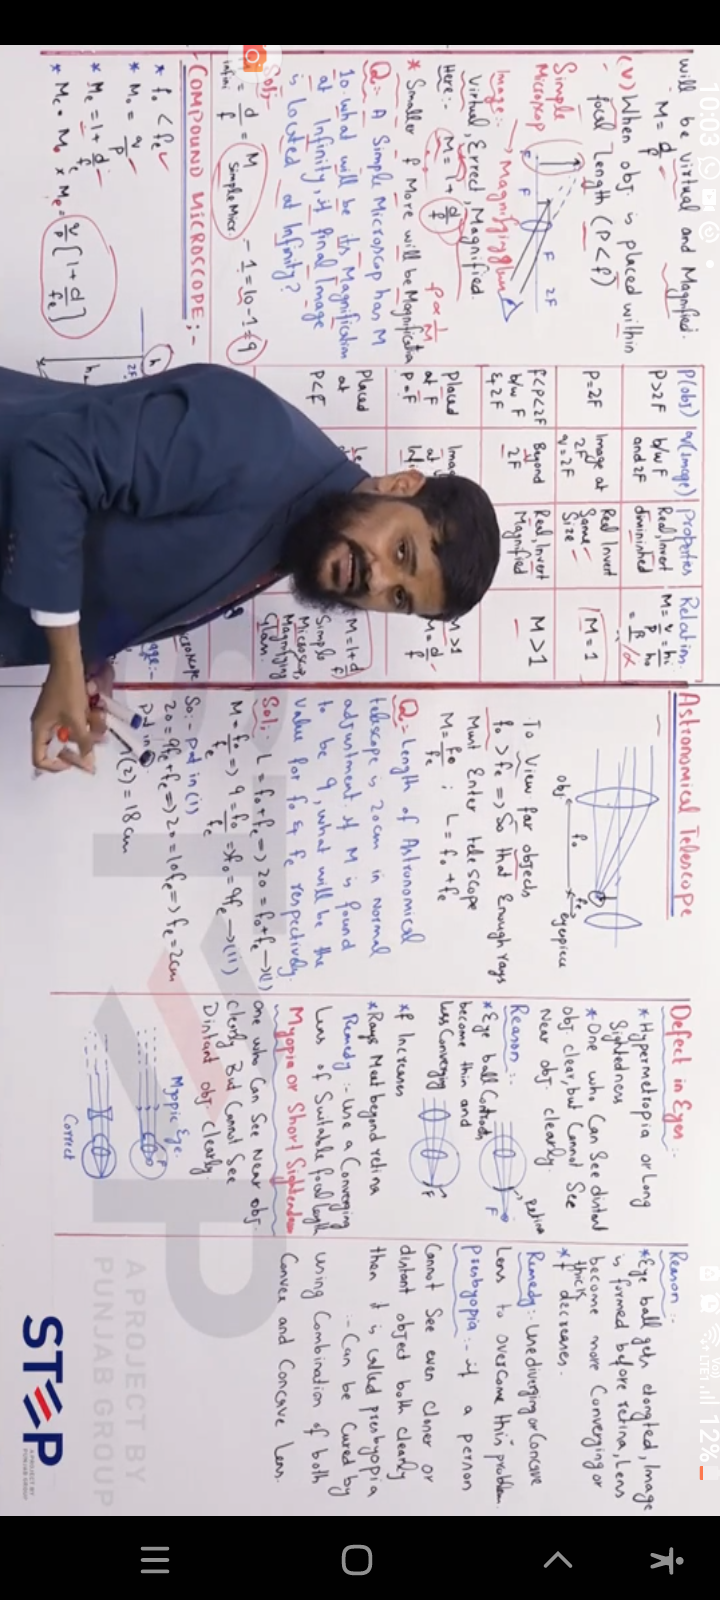 10:03
12%
will be virtual and Magnified.
M = d/f
(V) When obj. is placed within
focal length (P < f)
Simple
Microscop
F
F
2F
Image:- Magnifying glass
Virtual, Errect, Magnified.
Here:- M = 1 + d/f
f ∝ 1/M
* Smaller f More will be Magnification
Q:- A Simple Microscop has M
10. What will be its Magnification
at Infinity, if final Image
is Located at Infinity?
Sol:-
infini
d/f = M simple Micr. - 1 = 10 - 1 = 9
COMPOUND MICROSCOPE:-
* fo < fe
* Mo = q/p
* Me = 1 + d/fe
* Mc = Mo x Me = q/p [1 + d/fe]
h
2F
P(obj) q(image) Properties Relation
P>2F b/w F and 2F Real, Invert diminished
P=2F Image at 2F q=2F Real Invert Same Size M=1
f<P<2F b/w F & 2F Beyond 2F Real, Invert Magnified M>1
Placed at F P=F
M = d/f
Placed at P<F
M = 1 + d/f
Simple
Microscop,
Magnifying
Glass.
Astronomical Telescope
obj
fo
fe
eyepiece
To View far objects
fo > fe => So that Enough rays
Must Enter telescope
M = fo/fe ; L = fo + fe
Q:- Length of Astronomical
telescope is 20cm in Normal
adjustment. if M is found
to be 9, what will be the
value for fo & fe respectively.
Sol:- L = fo + fe => 20 = fo + fe → (i)
M = fo/fe => 9 = fo/fe => fo = 9fe → (ii)
So:- put in (i)
20 = 9fe + fe => 20 = 10fe => fe = 2cm
put in
(2) = 18cm
Defect in Eyes:-
* Hypermetropia or Long
Sightedness
* One who Can See distant
obj clear, but Cannot See
Near obj clearly.
Reason:-
* Eye ball Contracts
become thin and
less Converging
retina
F
F
* f Increases
* Rays Meet beyond retina
Remedy:- Use a Converging
Lens of Suitable focal length
Myopia or Short Sightedness
one who Can See Near obj.
clearly But Cannot See
Distant obj. clearly.
Myopic Eye.
F
Correct
Reason:-
* Eye ball gets elongted, Image
is formed before retina, Lens
become more Converging or
thick
* f decreases.
Remedy:- Use diverging or Concave
Lens to overcome this problem.
Presbyopia:- if a person
Cannot See even closer or
distant object both clearly
then it is called presbyopia
:- Can be Cured by
using Combination of both
Convex and Concave Lens.
A PROJECT BY
PUNJAB GROUP
STEP
A PROJECT BY
PUNJAB GROUP